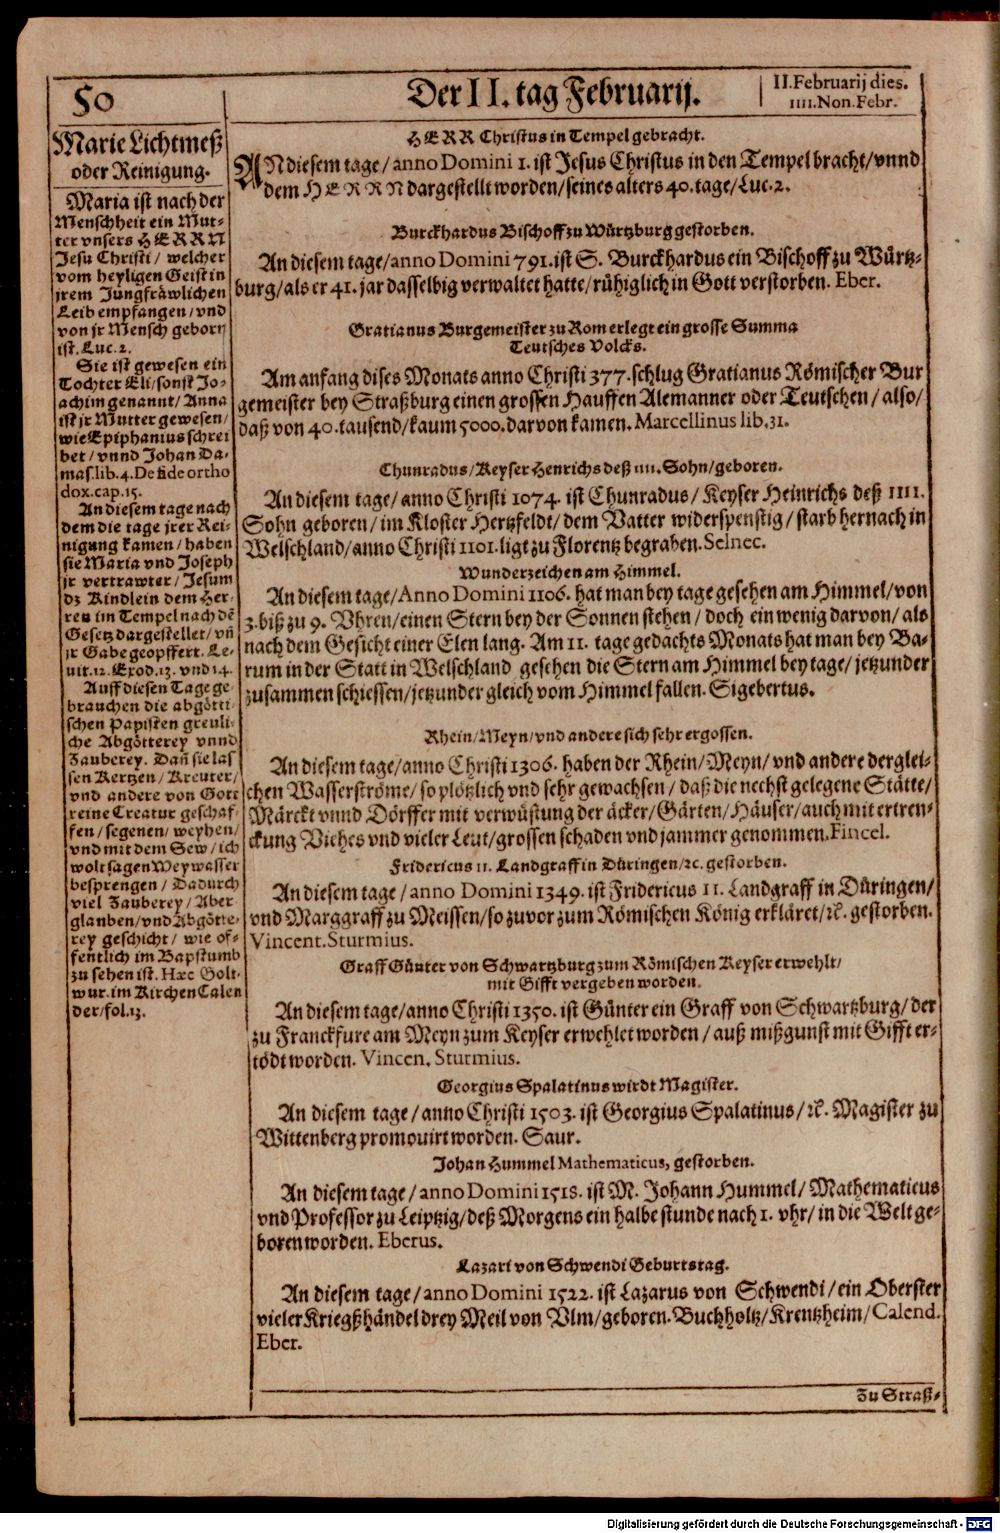 50
Der II. tag Februarij.
II. Februarij dies.
IIII. Non. Febr.
Marie Lichtmeß
oder Reinigung.
Maria ist nach der
Menschheit ein Mut-
ter vnsers HERRN
Jesu Christi / welcher
vom heyligen Geist in
jrem Jungfräwlichen
Leib empfangen / vnd
von jr Mensch geborn
ist. Luc. 2.
Sie ist gewesen ein
Tochter Eli / sonst Jo-
achim genannt / Anna
ist jr Mutter gewesen /
wie Epiphanius schrei
bet / vnnd Johan Da-
mas. lib. 4. De fide ortho
dox. cap. 15.
An diesem tage nach
dem die tage jrer Rei-
nigung kamen / haben
sie Maria vnd Joseph
jr vertrawter / Jesum
dz Kindlein dem Her-
ren im Tempel nach dē
Gesetz dargestellet / vñ
jr Gabe geopffert. Le-
uit. 12. Exod. 13. vnd 14.
Auff diesen Tage ge
brauchen die abgötti-
schen Papisten greuli-
che Abgötterey vnnd
Zauberey. Dañ sie las
sen Kertzen / Kreuter /
vnd andere von Gott
reine Creatur geschaf-
fen / segenen / weyhen /
vnd mit dem Sew / ich
wolt sagen Weywasser
besprengen / Dadurch
viel Zauberey / Aber
glauben / vnd Abgötte-
rey geschicht / wie of-
fentlich im Bapstumb
zu sehen ist. Hæc Golt-
wur. im Kirchen Calen
der / fol. 13.
HERR Christus in Tempel gebracht.
AN diesem tage / anno Domini 1. ist Jesus Christus in den Tempel bracht / vnnd
dem HERRN dargestellt worden / seines alters 40. tage / Luc. 2.
Burckhardus Bischoff zu Würtzburg gestorben.
An diesem tage / anno Domini 791. ist S. Burckhardus ein Bischoff zu Würtz-
burg / als er 41. jar dasselbig verwaltet hatte / rühiglich in Gott verstorben. Eber.
Gratianus Burgemeister zu Rom erlegt ein grosse Summa
Teutsches Volcks.
Am anfang dises Monats anno Christi 377. schlug Gratianus Römischer Bur
gemeister bey Straßburg einen grossen Hauffen Alemanner oder Teutschen / also /
daß von 40. tausend / kaum 5000. daruon kamen. Marcellinus lib. 31.
Chunradus / Keyser Henrichs deß IIII. Sohn / geboren.
An diesem tage / anno Christi 1074. ist Chunradus / Keyser Heinrichs deß IIII.
Sohn geboren / im Kloster Hertzfeldt / dem Vatter widerspenstig / starb hernach in
Welschland / anno Christi 1101. ligt zu Florentz begraben. Selnec.
Wunderzeichen am Himmel.
An diesem tage / Anno Domini 1106. hat man bey tage gesehen am Himmel / von
3. biß zu 9. Vhren / einen Stern bey der Sonnen stehen / doch ein wenig daruon / als
nach dem Gesicht einer Elen lang. Am 11. tage gedachts Monats hat man bey Ba-
rum in der Statt in Welschland gesehen die Stern am Himmel bey tage / jetzunder
zusammen schiessen / jetzunder gleich vom Himmel fallen. Sigebertus.
Rhein / Meyn / vnd andere sich sehr ergossen.
An diesem tage / anno Christi 1306. haben der Rhein / Meyn / vnd andere derglei-
chen Wasserströme / so plötzlich vnd sehr gewachsen / daß die nechst gelegene Stätte /
Märckt vnnd Dörffer mit verwüstung der äcker / Gärten / Häuser / auch mit ertren-
ckung Viehes vnd vieler Leut / grossen schaden vnd jammer genommen. Fincel.
Fridericus II. Landgraff in Düringen / ꝛc. gestorben.
An diesem tage / anno Domini 1349. ist Fridericus II. Landgraff in Düringen /
vnd Marggraff zu Meissen / so zuvor zum Römischen König erkläret / ꝛc. gestorben.
Vincent. Sturmius.
Graff Günter von Schwartzburg zum Römischen Keyser erwehlt /
mit Gifft vergeben worden.
An diesem tage / anno Christi 1350. ist Günter ein Graff von Schwartzburg / der
zu Franckfurt am Meyn zum Keyser erwehlet worden / auß mißgunst mit Gifft er-
tödt worden. Vincen. Sturmius.
Georgius Spalatinus wirdt Magister.
An diesem tage / anno Christi 1503. ist Georgius Spalatinus / ꝛc. Magister zu
Wittenberg promouirt worden. Saur.
Johan Hummel Mathematicus, gestorben.
An diesem tage / anno Domini 1518. ist M. Johann Hummel / Mathematicus
vnd Professor zu Leiptzig / deß Morgens ein halbe stunde nach 1. vhr / in die Welt ge-
boren worden. Eberus.
Lazari von Schwendi Geburtstag.
An diesem tage / anno Domini 1522. ist Lazarus von Schwendi / ein Oberster
vieler Kriegßhändel drey Meil von Vlm / geboren. Buchholtz / Krentzheim / Calend.
Eber.
Zu Straß-
Digitalisierung gefördert durch die Deutsche Forschungsgemeinschaft - DFG